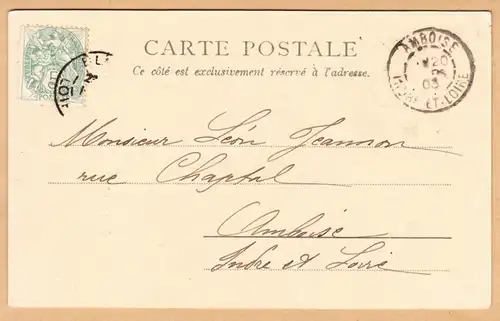 CARTE POSTALE
Ce côté est exclusivement réservé à l'adresse.
AMBOISE
20
03
INDRE-ET-LOIRE
Monsieur Léon Jeannon
rue Chaptal
Amboise
Indre et Loire